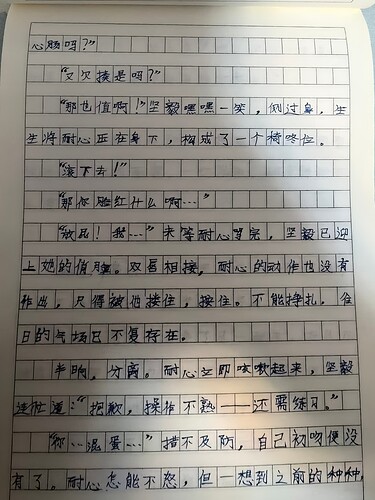 心肠吗？”
“又欠揍是吗？”
“那也值啊！”坚毅嘿嘿一笑，侧过身，生
生将耐心压在身下，构成了一个椅咚位。
“滚下去！”
“那你脸红什么啊…”
“放屁！我…”未等耐心骂完，坚毅已迎
上她的俏脸。双唇相接，耐心的动作也没有
作出，只得被他接住，按住。不能挣扎，往
日的气场已不复存在。
半晌，分离。耐心立即咳嗽起来，坚毅
连忙道：“抱歉，操作不熟——还需练习。”
“你…混蛋…”措不及防，自己初吻便没
有了。耐心怎能不怒，但一想到之前的种种，